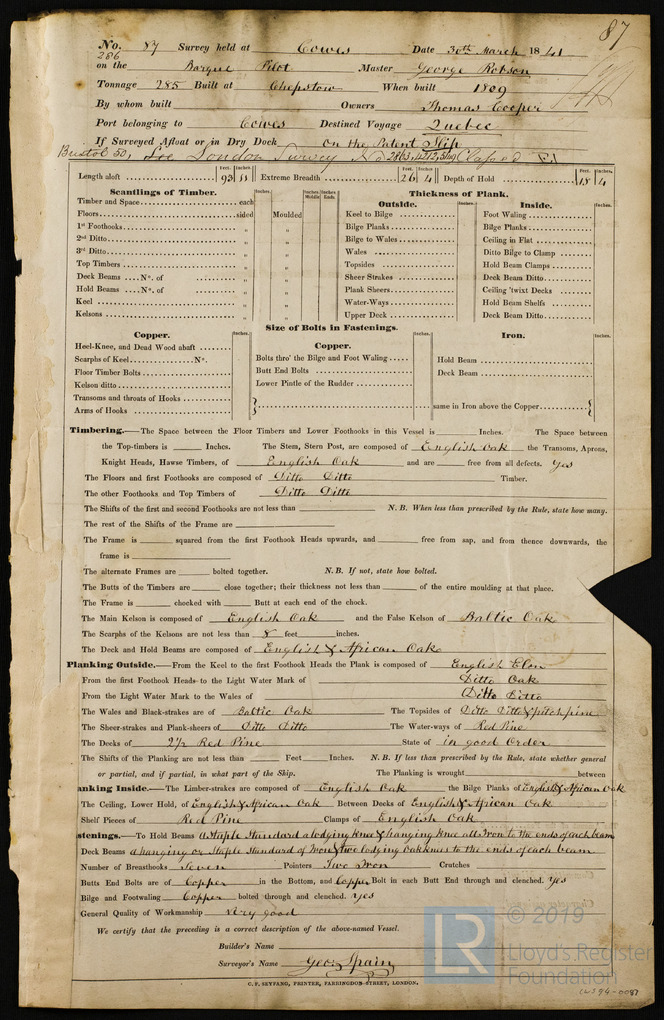 87
No. 87 Survey held at Cowes Date 30th March 1841
286
on the Barque Pilot Master George Robson
Tonnage 285 Built at Chepstow When built 1809
By whom built Owners Thomas Cooper
Port belonging to Cowes Destined Voyage Quebec
If Surveyed Afloat or in Dry Dock On the Patent Slip
Bristol 50, See London Survey Classed
Feet. Inches. Feet. Inches. Feet. Inches.
Length aloft 93 11 Extreme Breadth 26 4 Depth of Hold 18 4
Scantlings of Timber. Inches. Inches Middle Inches Ends. Thickness of Plank.
Outside. Inches. Inside. Inches.
Timber and Space each
Floors sided Moulded
1st Foothooks „ „
2nd Ditto „ „
3rd Ditto „ „
Top Timbers „ „
Deck Beams No. of „ „
Hold Beams No. of „ „
Keel „ „
Kelsons „ „
Keel to Bilge
Bilge Planks
Bilge to Wales
Wales
Topsides
Sheer Strakes
Plank Sheers
Water-Ways
Upper Deck
Foot Waling
Bilge Planks
Ceiling in Flat
Ditto Bilge to Clamp
Hold Beam Clamps
Deck Beam Ditto
Ceiling 'twixt Decks
Hold Beam Shelfs
Deck Beam Ditto
Size of Bolts in Fastenings.
Copper. Inches.
Heel-Knee, and Dead Wood abaft
Scarphs of Keel No.
Floor Timber Bolts
Kelson ditto
Transoms and throats of Hooks
Arms of Hooks
Copper. Inches.
Bolts thro' the Bilge and Foot Waling
Butt End Bolts
Lower Pintle of the Rudder
Iron. Inches.
Hold Beam
Deck Beam
same in Iron above the Copper
Timbering.—The Space between the Floor Timbers and Lower Foothooks in this Vessel is Inches. The Space between
the Top-timbers is Inches. The Stem, Stern Post, are composed of English Oak the Transoms, Aprons,
Knight Heads, Hawse Timbers, of English Oak and are free from all defects. Yes
The Floors and first Foothooks are composed of Ditto Ditto Timber.
The other Foothooks and Top Timbers of Ditto Ditto
The Shifts of the first and second Foothooks are not less than N.B. When less than prescribed by the Rule, state how many.
The rest of the Shifts of the Frame are
The Frame is squared from the first Foothook Heads upwards, and free from sap, and from thence downwards, the
frame is
The alternate Frames are bolted together. N.B. If not, state how bolted.
The Butts of the Timbers are close together; their thickness not less than of the entire moulding at that place.
The Frame is chocked with Butt at each end of the chock.
The Main Kelson is composed of English Oak and the False Kelson of Baltic Oak
The Scarphs of the Kelsons are not less than 8 feet inches.
The Deck and Hold Beams are composed of English & African Oak
Planking Outside.—From the Keel to the first Foothook Heads the Plank is composed of English Elm
From the first Foothook Heads to the Light Water Mark of Ditto Oak
From the Light Water Mark to the Wales of Ditto Ditto
The Wales and Black-strakes are of Baltic Oak The Topsides of Ditto Ditto & pitch pine
The Sheer-strakes and Plank-sheers of Ditto Ditto The Water-ways of Red Pine
The Decks of 2½ Red Pine State of in good Order
The Shifts of the Planking are not less than Feet Inches. N.B. If less than prescribed by the Rule, state whether general
or partial, and if partial, in what part of the Ship. The Planking is wrought between
anking Inside.—The Limber-strakes are composed of English Oak the Bilge Planks of English & African Oak
The Ceiling, Lower Hold, of English & African Oak Between Decks of English & African Oak
Shelf Pieces of Red Pine Clamps of English Oak
stenings.—To Hold Beams a Staple Standard a lodging knee & hanging knee all Iron to the ends of each beam
Deck Beams a hanging or Staple Standard of Iron & two lodging oak knees to the ends of each beam
Number of Breasthooks Seven Pointers Two Iron Crutches
Butts End Bolts are of Copper in the Bottom, and Copper Bolt in each Butt End through and clenched. Yes
Bilge and Footwaling Copper bolted through and clenched. Yes
General Quality of Workmanship Very good
We certify that the preceding is a correct description of the above-named Vessel.
Builder's Name
Surveyor's Name Geo: Spain
C. F. SEYFANG, PRINTER, FARRINGDON-STREET, LONDON.
LR © 2019
Lloyd's Register
Foundation
CWS94-0087